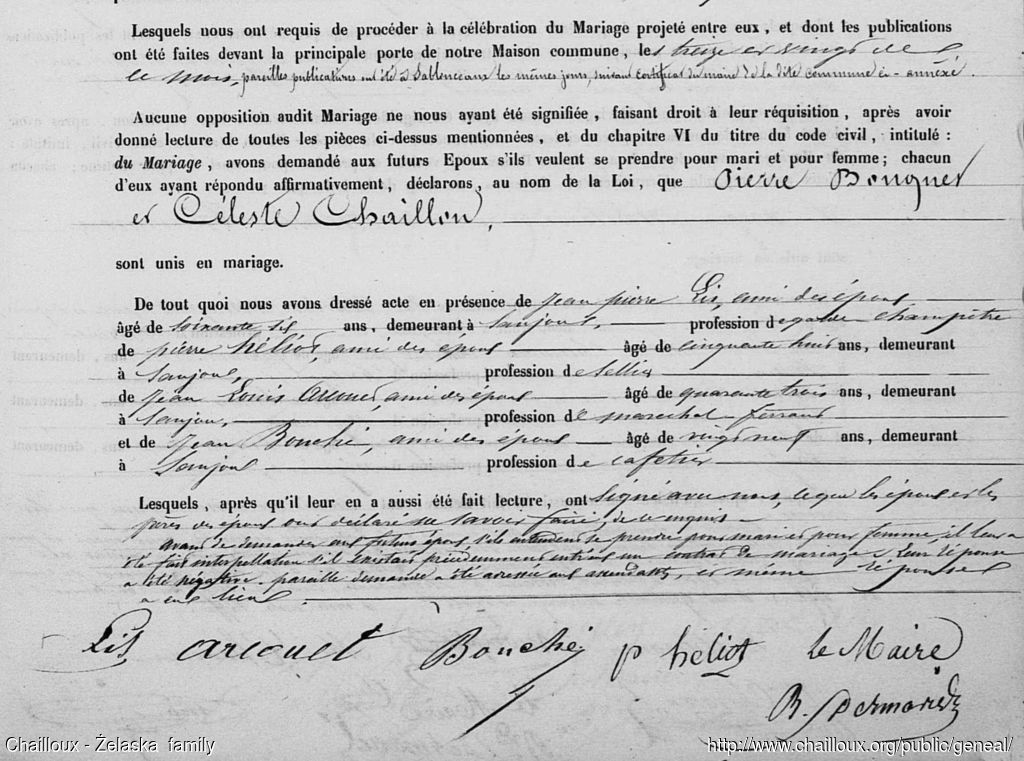 Lesquels nous ont requis de procéder à la célébration du Mariage projeté entre eux, et dont les publications
ont été faites devant la principale porte de notre Maison commune, les treize et vingt de
ce mois, pareilles publications ont été à Sablonceaux les mêmes jours, suivant certificat du maire de la dite commune ci-annexé.
Aucune opposition audit Mariage ne nous ayant été signifiée, faisant droit à leur réquisition, après avoir
donné lecture de toutes les pièces ci-dessus mentionnées, et du chapitre VI du titre du code civil, intitulé :
du Mariage, avons demandé aux futurs Epoux s'ils veulent se prendre pour mari et pour femme; chacun
d'eux ayant répondu affirmativement, déclarons, au nom de la Loi, que Pierre Bouquet
et Céleste Chaillou,
sont unis en mariage.
De tout quoi nous avons dressé acte en présence de Jean pierre Lis, ami des époux
âgé de soixante six ans, demeurant à Saujon, profession de garde champêtre
de pierre héliot, ami des époux âgé de cinquante huit ans, demeurant
à Saujon, profession de sellier
de Jean Louis Arcouet, ami des époux âgé de quarante trois ans, demeurant
à Saujon, profession de marechal ferrand
et de Jean Bouché, ami des époux âgé de vingt neuf ans, demeurant
à Saujon profession de cafetier
Lesquels, après qu'il leur en a aussi été fait lecture, ont signé avec nous, ce que les époux et les
pères des époux ont déclaré ne savoir faire, de ce enquis
avant de demander aux futurs époux s'ils entendent se prendre pour mari et pour femme, il leur a
été fait interpellation s'il existait précédemment entr'eux un contrat de mariage, leur réponse
a été négative. pareille demande a été adressée aux ascendants, et même réponse
a eu lieu.
Lis arcouet Bouché p héliot le Maire
R.
Chailloux - Żelaska family http://www.chailloux.org/public/geneal/